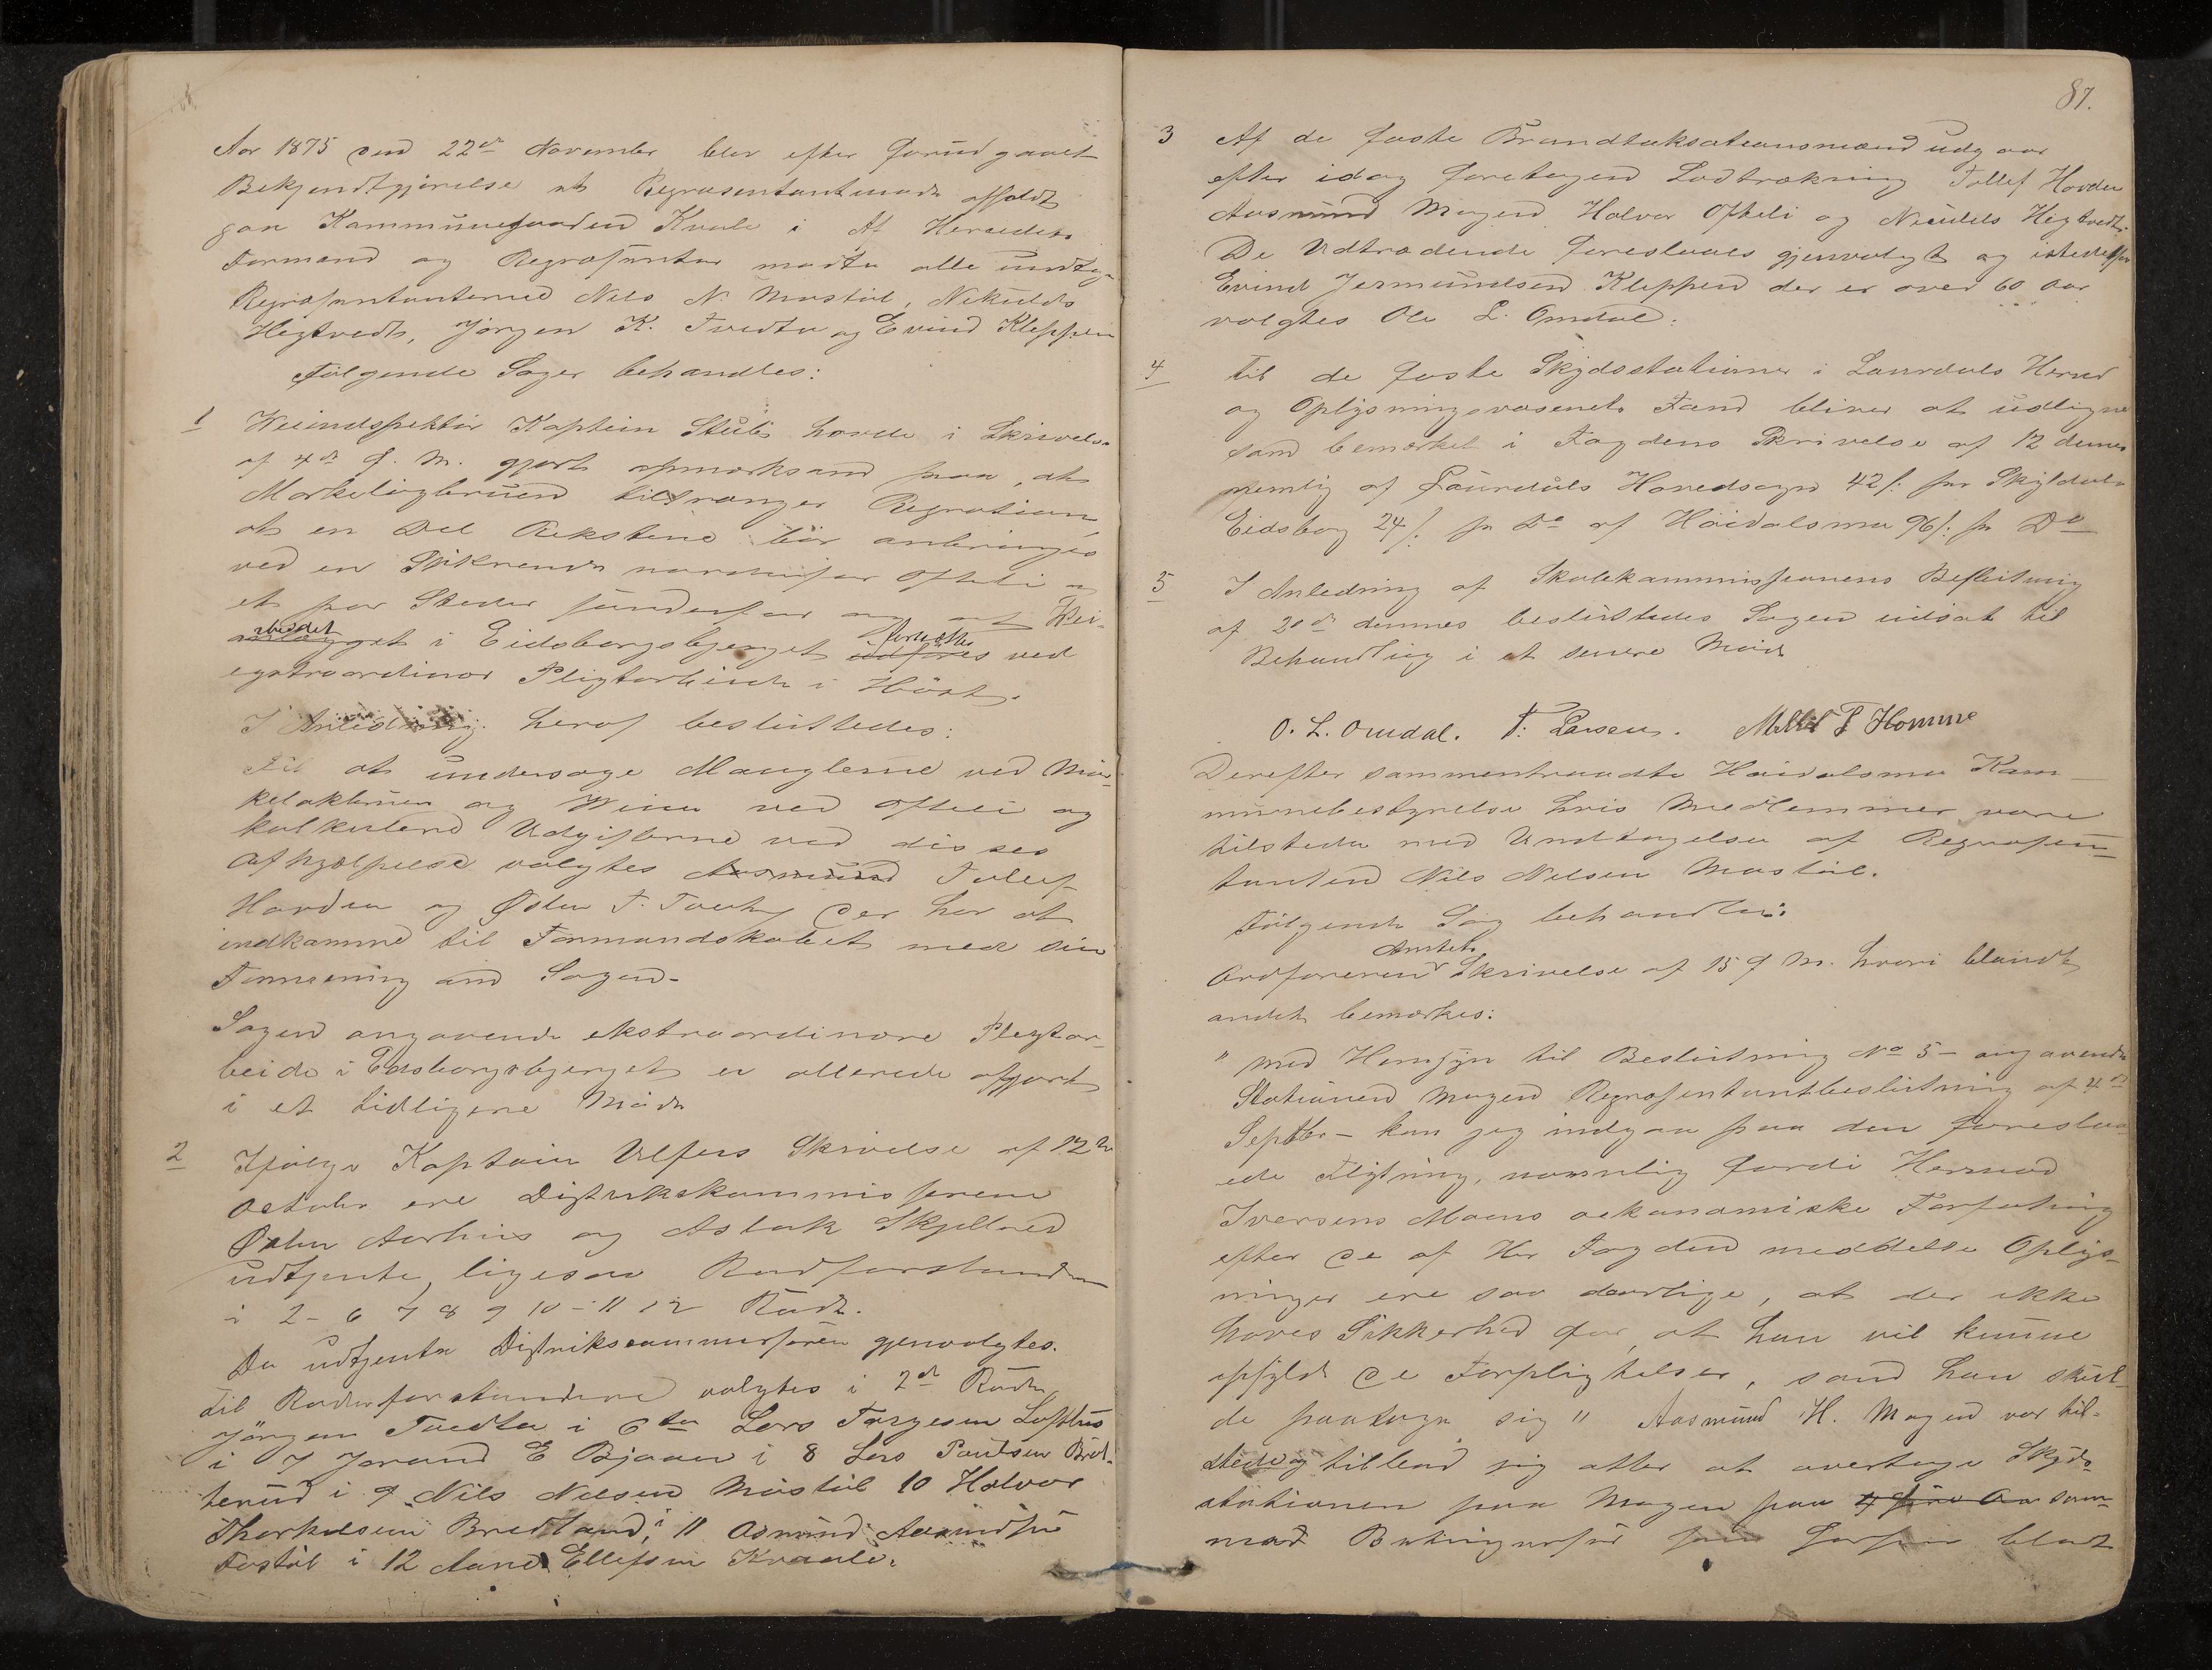 Aar 1875 den 22de November blev efter forudgaaet
Bekjendtgjørelse et Repræsentantmøde afholdt
paa Kommunegaarden Kvale i Af Herredets
Formænd og Repræsentanter mødte alle undtagen
Repræsentanterne Nils N. Mostøl, Nikuls
Hegtvedt, Jørgen K. Tvedten og Evind Kleppen
Følgende Sager behandles:
1 Veiindspektør Kaptein havde i Skrivelse
af 4de d. M. gjort opmærksom paa, at
tiltrænger Reparation
at en Del Rækstene bør anbringes
ved en nordenfor Ofteli og
et par Steder søndenfor og at Vei-
arbeidet
anlægget i Eidsborgsbjerget fortsættes udføres ved
egstraordinær Pligtarbeide i Høst.
I Anledning heraf besluttedes:
Til at undersøge Manglerne ved
og Veien ved Ofteli og
kalkulere Udgifterne ved disses
Afhjælpelse valgtes Aasmund Tollef
Hovden og Østen T. Tveit, der har at
indkomme til Formandskabet med sin
Formening om Sagen-
Sagen angaaende ekstraordinære Pligtar-
beide i Eidsborgsbjerget er allerede afgjort
i et tidligere Møde
2 Ifølge Kaptein Ulfers Skrivelse af 12te
October ere Distrikskommissærene
Østen Aarhus og Aslak Skjelbred
udtjente, ligesaa Rodforstanderne
i 2 - 6 7 8 9 10 - 11 12 Rode.
De udtjente Distrikscommissæren gjenvalgtes.
Til Rodeforstandere valgtes i 2de Rode
Jørgen Tvedten i 6te Lars Targesen Lofthus
i 7 Jorand E Bjaaen i 8 Lars Paulsen
i 9 Nils Nilsen Mostøl 10 Halvor
Thorkelsen Bredland, i 11 Osmund Aasmundsen
i 12 Aane Ellefsen Kvaale.
87.
3 Af de faste Brandtaksationsmænd udgaar
efter idag foretagen Lodtrækning Tollef Hovden
Aasmund Mogen Halvor Ofteli og Nikuls Hegtvedt.
De Udtrædende foreslaaes gjenvalgt og istedetfor
Evind Jermundsen Kleppen der er over 60 Aar
valgtes Ole L. Omdal.
4 Til de faste Skydsstationer i Laurdals Herred
og Oplysningsvæsenets Fond bliver at udligne
som bemærket i Fogdens Skrivelse af 12 dennes
nemlig af Laurdals Hovedsogn 42 /: pr Skylddaler
Eidsborg 24 /: pr Do af Høidalsmo 96 /: pr Do
5 I Anledning af Skolekommissionens Beslutning
af 20de dennes besluttedes Sagen udsat til
Behandling i et senere Møde
O. L. Omdal. T. Larsen. F Homme
Derefter sammentraadte Høidalsmo Kom-
munebestyrelse hvis Medlemmer vare
tilstede med Undtagelse af Repræsen-
tanten Nils Nilsen Mostøl.
Følgende Sag behandles:
Amtets
Ordførerens Skrivelse af 15 d. M. hvori blandt
andet bemærkes:
" med Hensyn til Beslutning No 5 - angaaende
Stationen Mogen Repræsentantbeslutning af 4de
Septbr - kan jeg indgaa paa den foreslaa-
ede Flytning, navnlig fordi Herr
Iversens Moens oekonomiske Forfatning
efter de af Hr Fogden meddelte Oplys-
ninger ere saa daarlige, at der ikke
haves Sikkerhed for, at han vil kunne
opfylde de Forpligtelser, som han skul-
de paatage sig " Aasmund H. Mogen var til-
stede og tilbød sig atter at overtage Skyds-
stationen paa Mogen paa 4 fire Aar sam-
mød Betingelser som